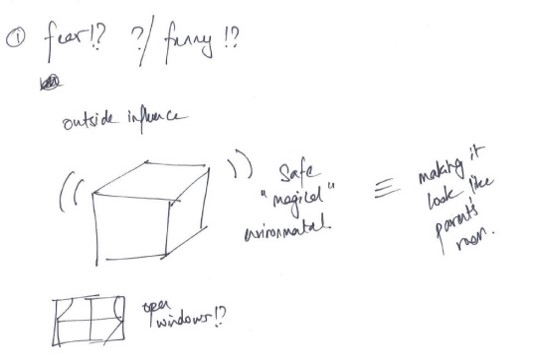 ① fear!? ?/ funny!?
outside influence
Safe
"magical"
environmental
≡ making it
look like
parents'
room.
open
windows!?